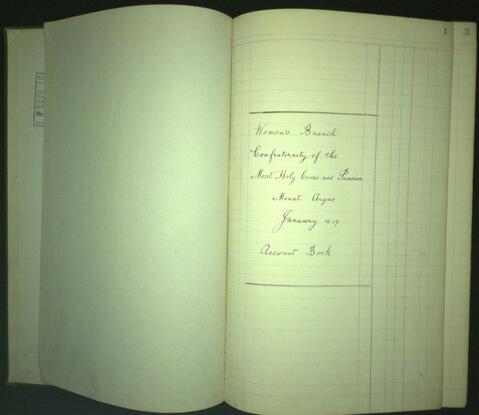 1 2
Women's Branch
Confraternity of the
Most Holy Cross and Passion
Mount Argus
January 1917
Account Book